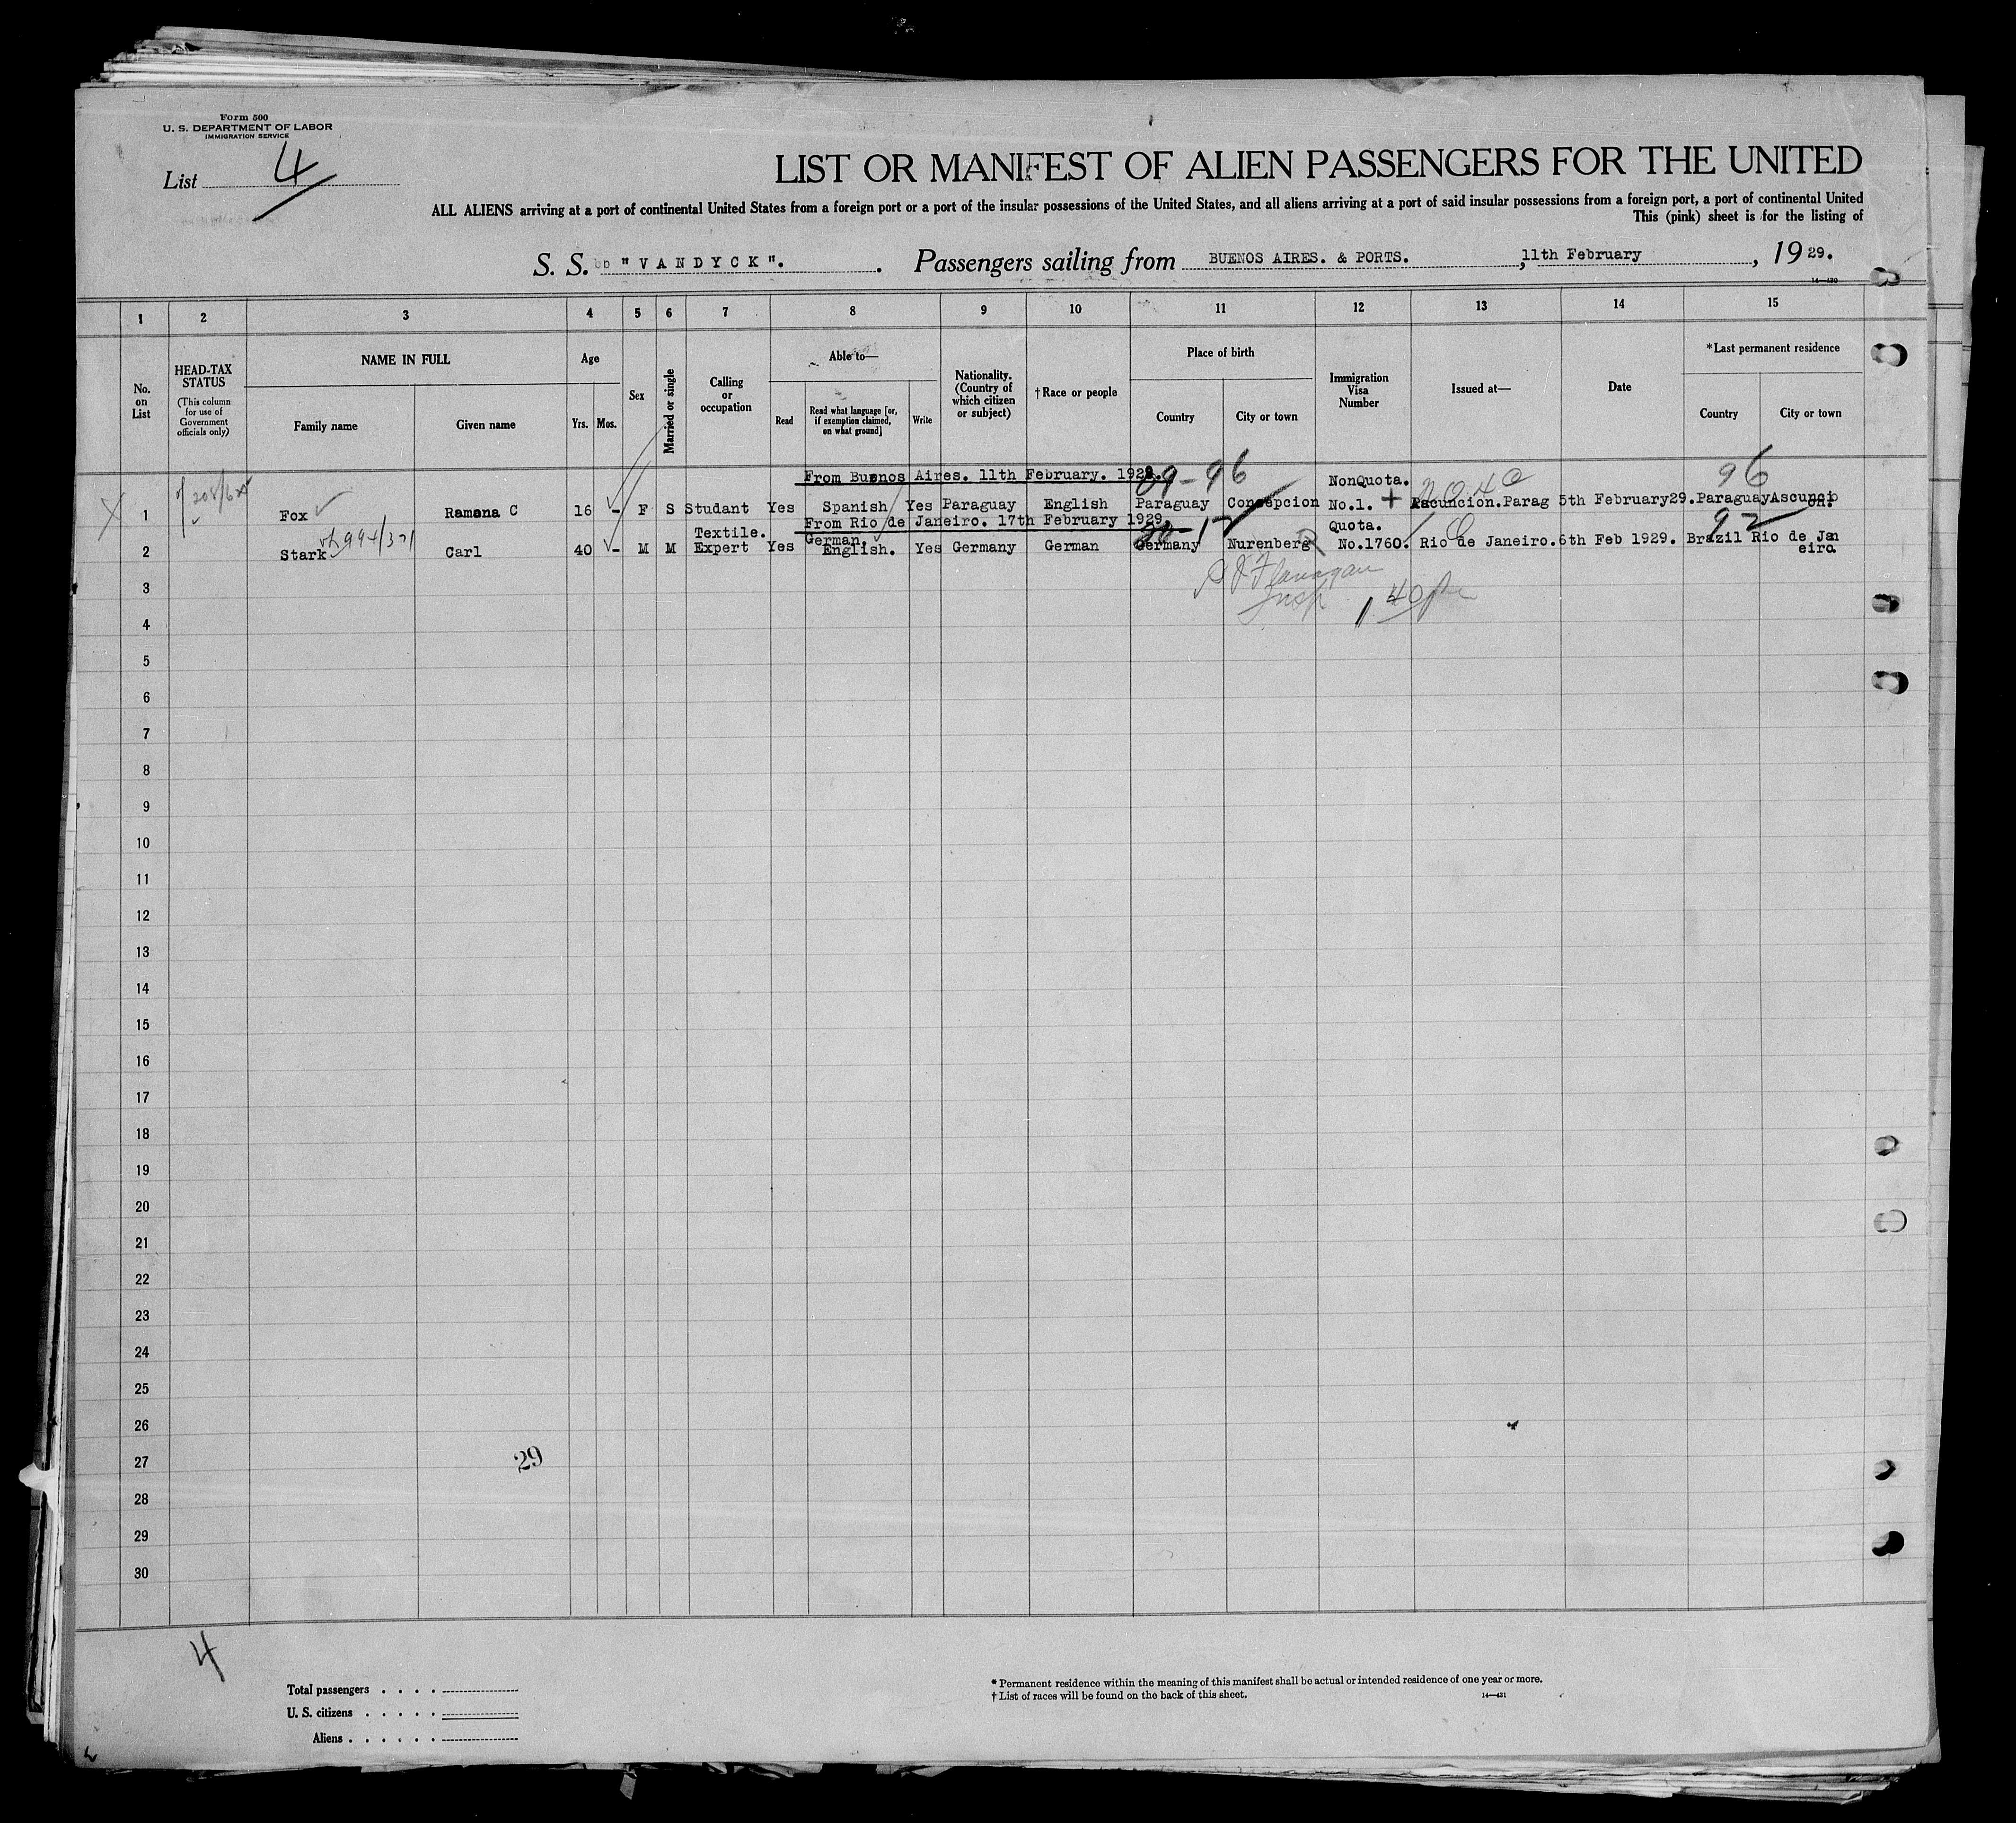 Form 500
U. S. DEPARTMENT OF LABOR
IMMIGRATION SERVICE
List 4
LIST OR MANIFEST OF ALIEN PASSENGERS FOR THE UNITED
ALL ALIENS arriving at a port of continental United States from a foreign port or a port of the insular possessions of the United States, and all aliens arriving at a port of said insular possessions from a foreign port, a port of continental United
This (pink) sheet is for the listing of
S. S. "VANDYCK". Passengers sailing from BUENOS AIRES. & PORTS. , 11th February , 1929.
14—430
1 2 3 4 5 6 7 8 9 10 11 12 13 14 15
No. on List
HEAD-TAX STATUS
(This column for use of Government officials only)
NAME IN FULL
Family name Given name
Age
Yrs. Mos.
Sex
Married or single
Calling or occupation
Able to—
Read Read what language [or, if exemption claimed, on what ground] Write
Nationality. (Country of which citizen or subject)
†Race or people
Place of birth
Country City or town
Immigration Visa Number
Issued at—
Date
*Last permanent residence
Country City or town
From Buenos Aires. 11th February. 1929. 09-96 NonQuota. 96
1 Fox Ramona C 16 - F S Studant Yes Spanish Yes Paraguay English Paraguay Concepcion No.1. + Ascuncion.Parag 5th February29. Paraguay Ascuncio
on.
From Rio de Janeiro. 17th February 1929. Quota. 92
Textile. German.
2 Stark 994/371 Carl 40 - M M Expert Yes English. Yes Germany German Germany Nurenberg No.1760. Rio de Janeiro. 6th Feb 1929. Brazil Rio de Jan
eiro.
Flanagan
Insp
3
4
5
6
7
8
9
10
11
12
13
14
15
16
17
18
19
20
21
22
23
24
25
26
27
29
28
29
30
4
Total passengers . . . .
U. S. citizens . . . . .
Aliens . . . . . .
* Permanent residence within the meaning of this manifest shall be actual or intended residence of one year or more.
† List of races will be found on the back of this sheet.
14—431